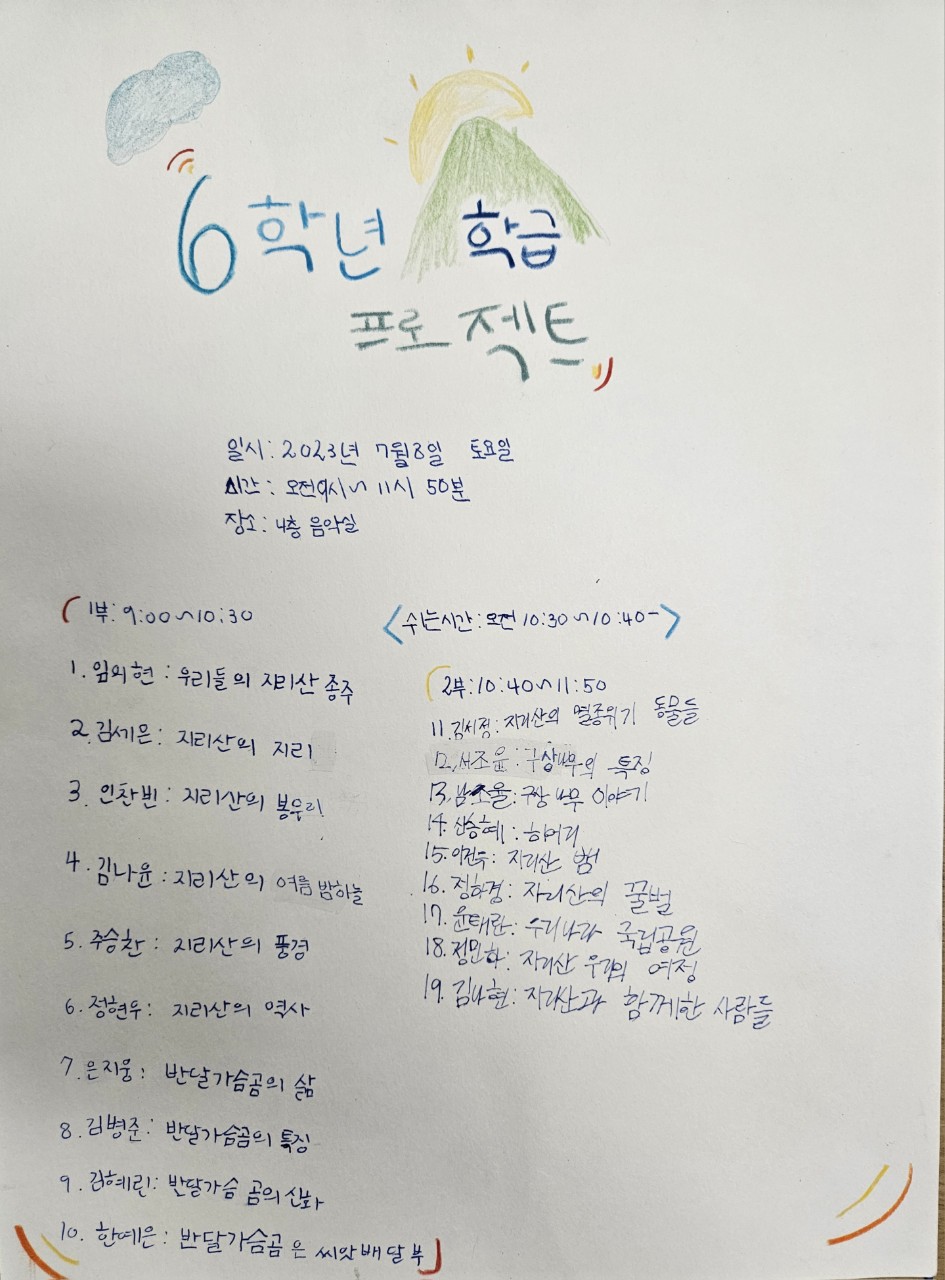 6학년 학급
프로젝트
일시: 2023년 7월 8일 토요일
시간: 오전9시~11시 50분
장소: 4층 음악실
1부: 9:00~10:30
1. 임의현: 우리들의 지리산 종주
2. 김세은: 지리산의 지리
3. 인찬빈: 지리산의 봉우리
4. 김나윤: 지리산의 여름 밤하늘
5. 주승찬: 지리산의 풍경
6. 정현우: 지리산의 역사
7. 은지웅: 반달가슴곰의 삶
8. 김병준: 반달가슴곰의 특징
9. 김혜린: 반달가슴 곰의 신화
10. 한예은: 반달가슴곰은 씨앗배달부
<쉬는시간: 오전 10:30~10:40>
2부: 10:40~11:50
11. 김서정: 지리산의 멸종위기 동물들
12. 서조윤: 구상나무의 특징
13. 남소율: 구상나무 이야기
14. 신승혜: 히어리
15. 지리산 범
16. 정하경: 지리산의 꿀벌
17. 윤태란: 우리나라 국립공원
18. 정민하: 지리산 우리의 여정
19. 김나현: 지리산과 함께한 사람들